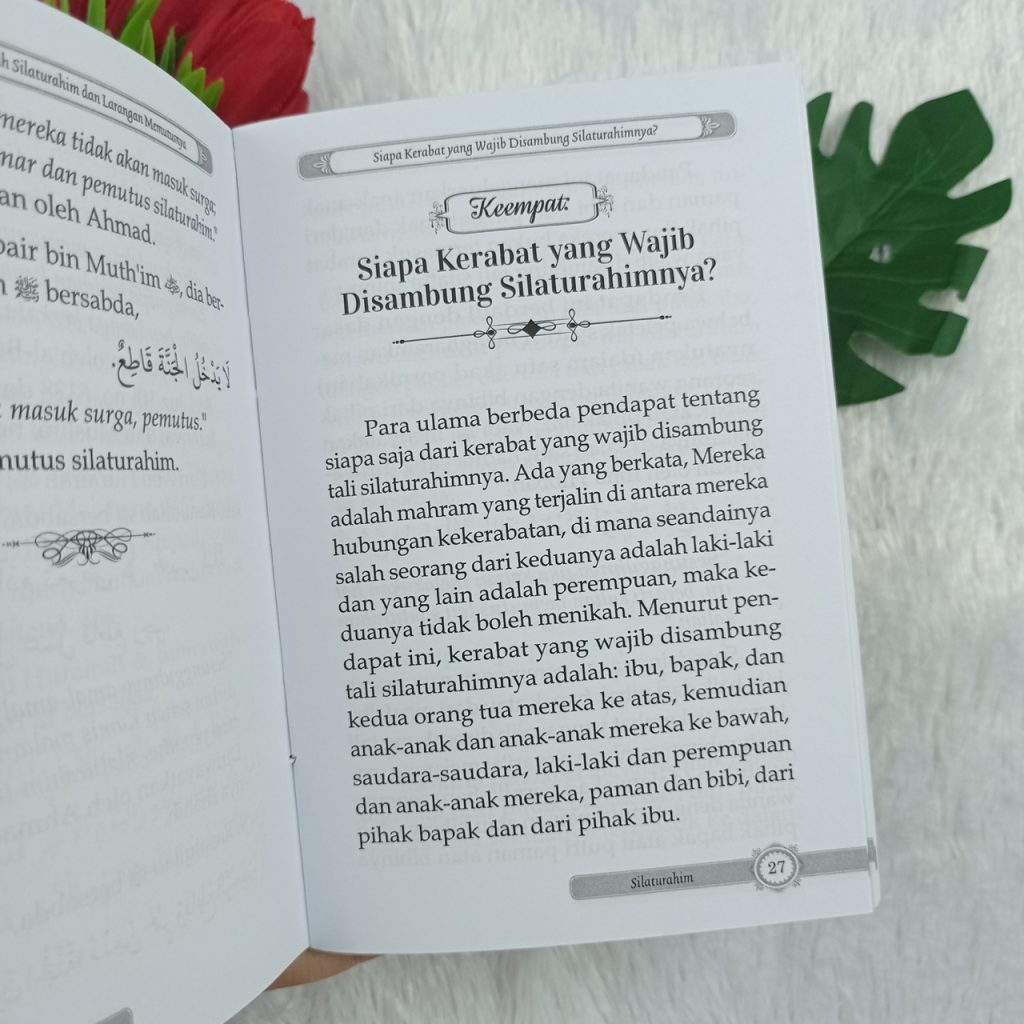 h Silaturahim dan Larangan Memutusnya
mereka tidak akan masuk surga;
mar dan pemutus silaturahim."
an oleh Ahmad.
bair bin Muth'im, dia ber-
ﷺ bersabda,
لَا يَدْخُلُ الْجَنَّةَ قَاطِعٌ.
masuk surga, pemutus."
mutus silaturahim.
Siapa Kerabat yang Wajib Disambung Silaturahimnya?
Keempat:
Siapa Kerabat yang Wajib
Disambung Silaturahimnya?
Para ulama berbeda pendapat tentang
siapa saja dari kerabat yang wajib disambung
tali silaturahimnya. Ada yang berkata, Mereka
adalah mahram yang terjalin di antara mereka
hubungan kekerabatan, di mana seandainya
salah seorang dari keduanya adalah laki-laki
dan yang lain adalah perempuan, maka ke-
duanya tidak boleh menikah. Menurut pen-
dapat ini, kerabat yang wajib disambung
tali silaturahimnya adalah: ibu, bapak, dan
kedua orang tua mereka ke atas, kemudian
anak-anak dan anak-anak mereka ke bawah,
saudara-saudara, laki-laki dan perempuan
dan anak-anak mereka, paman dan bibi, dari
pihak bapak dan dari pihak ibu.
Silaturahim
27